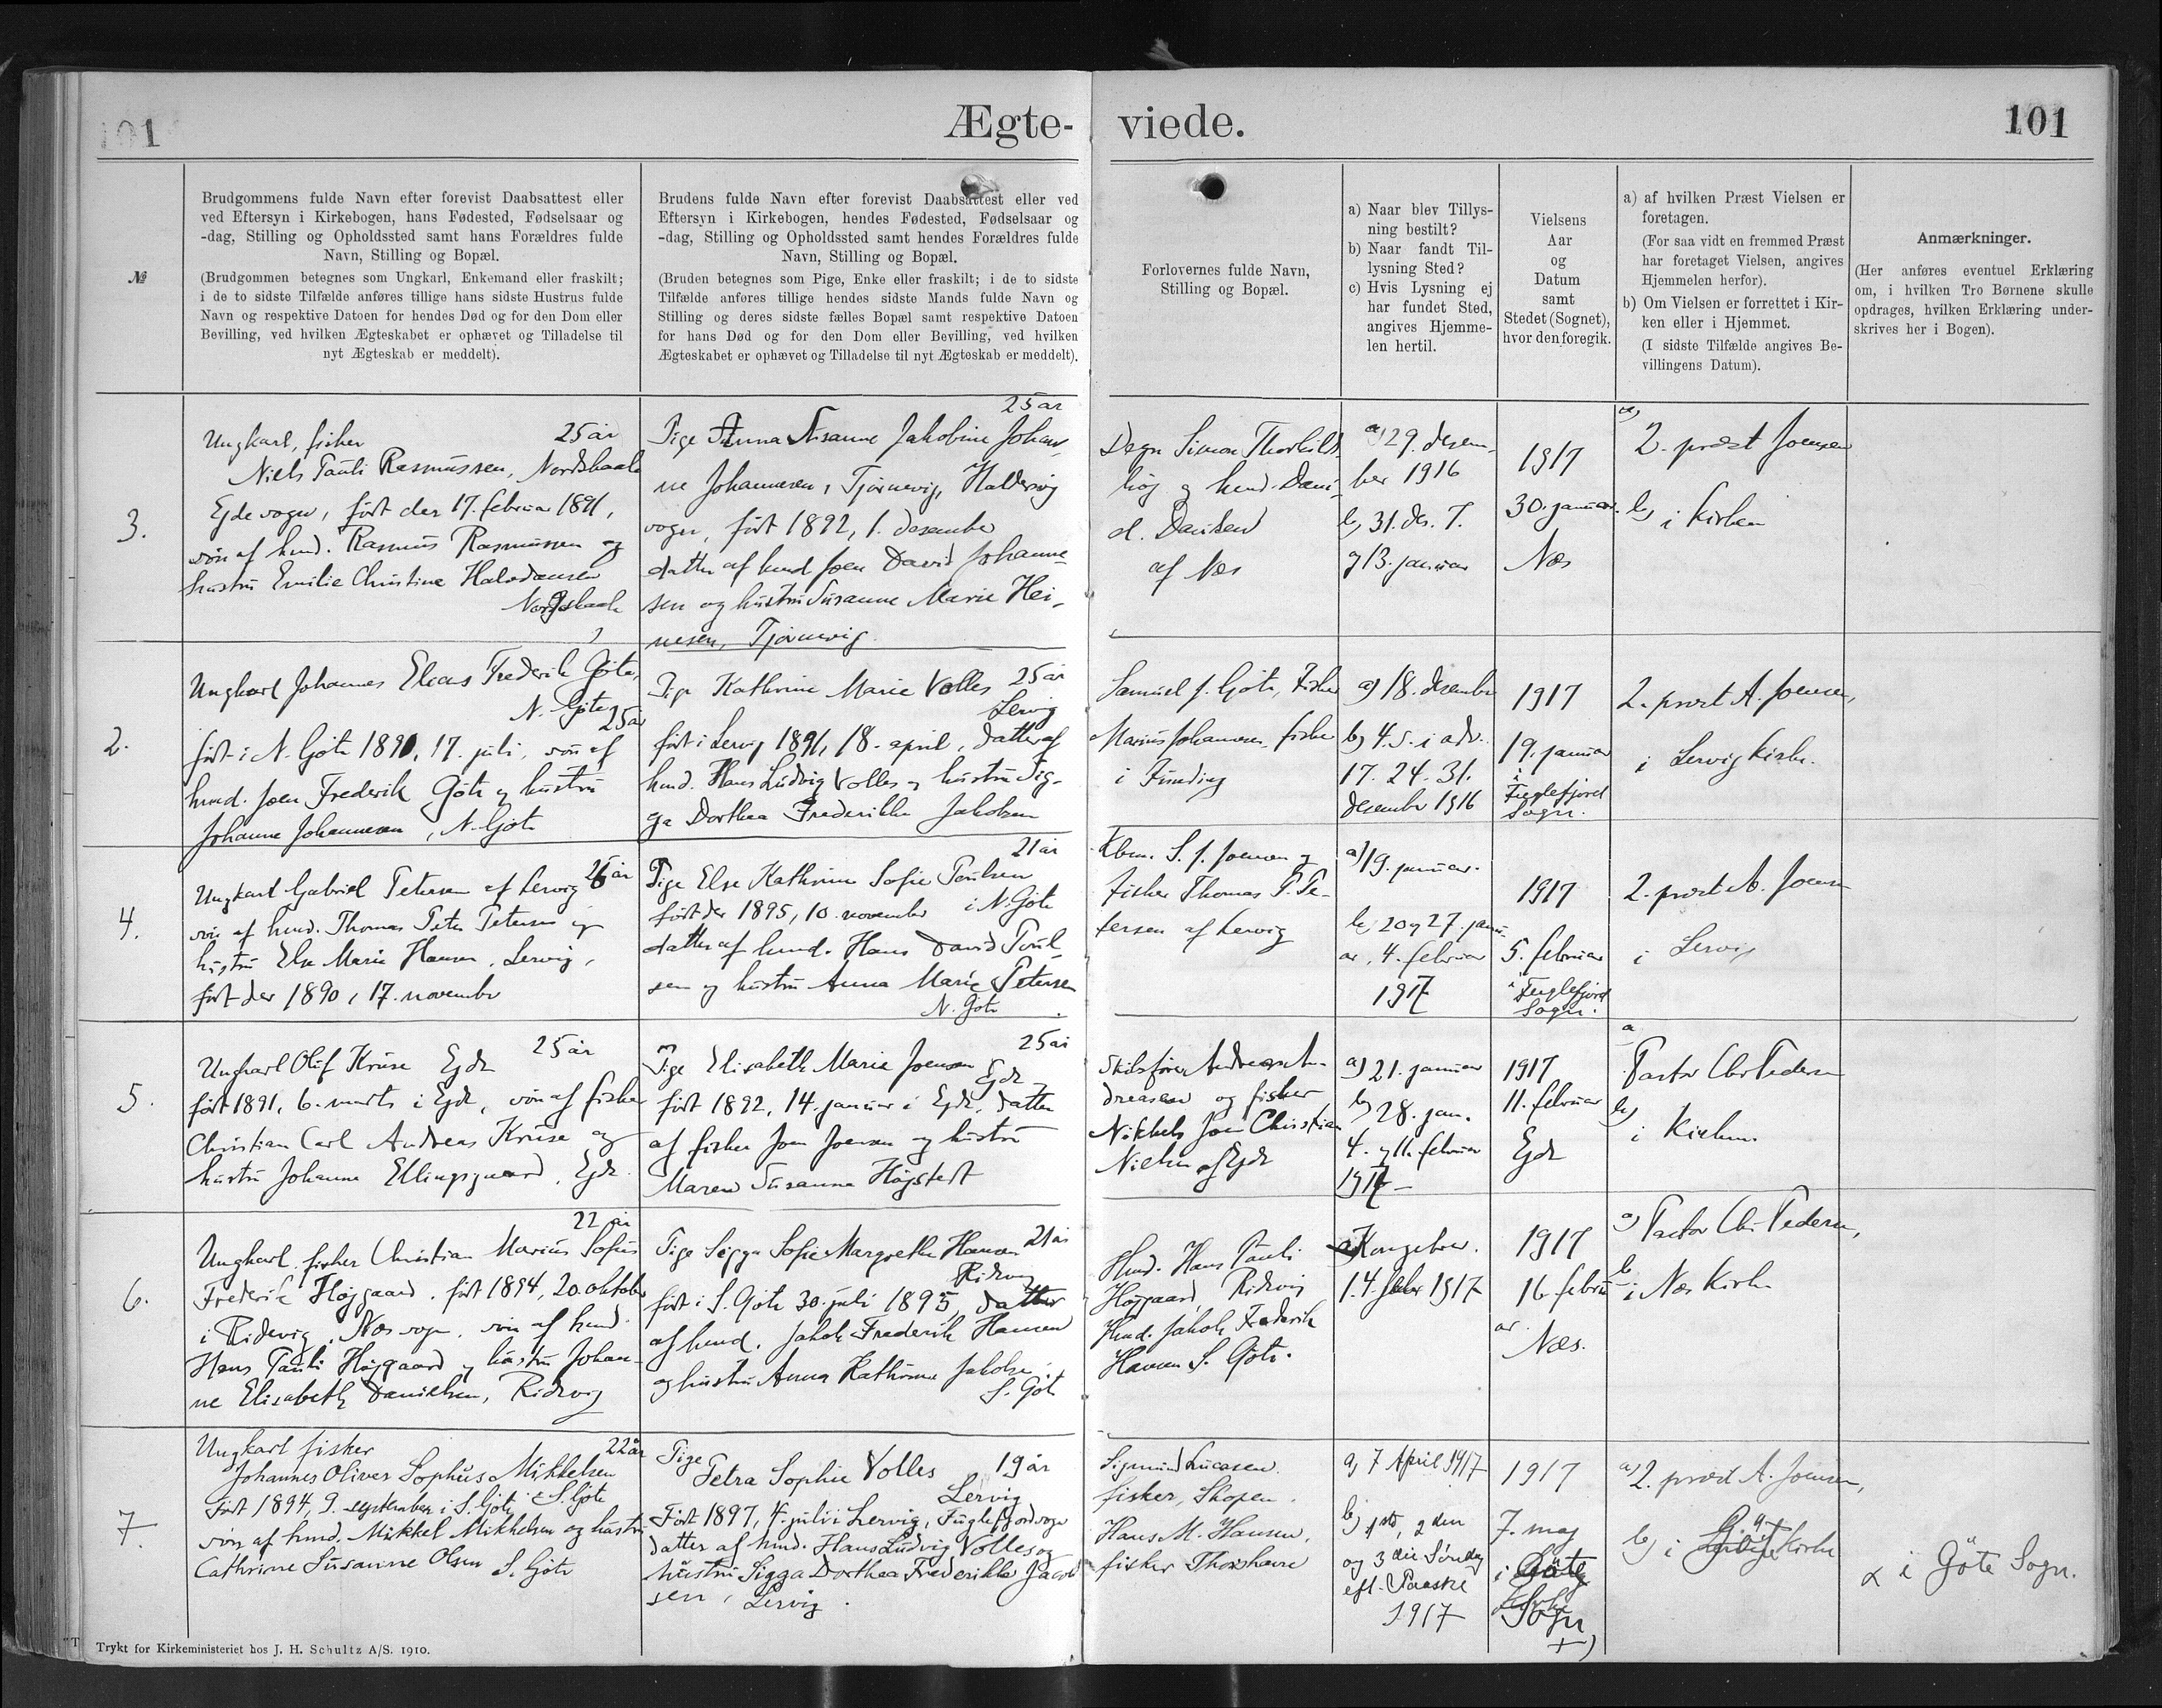 101
Ægte-
viede.
101
№
Brudgommens fulde Navn efter forevist Daabsattest eller
ved Eftersyn i Kirkebogen, hans Fødested, Fødselsaar og
-dag, Stilling og Opholdssted samt hans Forældres fulde
Navn, Stilling og Bopæl.
(Brudgommen betegnes som Ungkarl, Enkemand eller fraskilt;
i de to sidste Tilfælde anføres tillige hans sidste Hustrus fulde
Navn og respektive Datoen for hendes Død og for den Dom eller
Bevilling, ved hvilken Ægteskabet er ophævet og Tilladelse til
nyt Ægteskab er meddelt).
Brudens fulde Navn efter forevist Daabsattest eller ved
Eftersyn i Kirkebogen, hendes Fødested, Fødselsaar og
-dag, Stilling og Opholdssted samt hendes Forældres fulde
Navn, Stilling og Bopæl.
(Bruden betegnes som Pige, Enke eller fraskilt; i de to sidste
Tilfælde anføres tillige hendes sidste Mands fulde Navn og
Stilling og deres sidste fælles Bopæl samt respektive Datoen
for hans Død og for den Dom eller Bevilling, ved hvilken
Ægteskabet er ophævet og Tilladelse til nyt Ægteskab er meddelt).
Forlovernes fulde Navn,
Stilling og Bopæl.
a) Naar blev Tillys-
ning bestilt?
b) Naar fandt Til-
lysning Sted?
c) Hvis Lysning ej
har fundet Sted,
angives Hjemme-
len hertil.
Vielsens
Aar
og
Datum
samt
Stedet (Sognet),
hvor den foregik.
a) af hvilken Præst Vielsen er
foretagen.
(For saa vidt en fremmed Præst
har foretaget Vielsen, angives
Hjemmelen herfor).
b) Om Vielsen er forrettet i Kir-
ken eller i Hjemmet.
(I sidste Tilfælde angives Be-
villingens Datum).
Anmærkninger.
(Her anføres eventuel Erklæring
om, i hvilken Tro Børnene skulle
opdrages, hvilken Erklæring under-
skrives her i Bogen).
3.
Ungkarl, fisker 25 år
Niels Pauli Rasmussen, Nordskaale
Ejde sogn, født der 17. februar 1891,
søn af husmd. Rasmus Rasmussen og
hustru Emilie Christine Halvdansen
Nordskaale
25 år
Pige Anna Susanne Jakobine Johan-
ne Johannesen, Tjørnevig, Haldersvig
sogn, født 1892, 1. desember
datter af husmd Joen David Johanne-
sen og hustru Susanne Marie Hei-
nesen, Tjørnevig.
Degn Simon Thorkilds-
høj og husmd. Dani-
el. Danielsen
af Næs
a) 29. desem-
ber 1916
b) 31. des. 7.
og 13. januar
1917
30. januar.
Næs
a)
2. præst Joensen
b) i kirken
2.
Ungkarl Johannes Elias Frederik Göte,
N. Göte 25 år
født i N. Göte 1890, 17. juli, søn af
husmd. Joen Frederik Göte og hustru
Johanne Johannesen, N. Göte
Pige Kathrine Marie Volles 25 år
Lervig
født i Lervig 1891, 18. april, datter af
husmd. Hans Ludvig Volles og hustru Sig-
ga Dorthea Frederikke Jakobsen
Samuel J. Göte, Fisker
Marius Johannesen, fisker
i Funding
a) 18. desember
b) 4. s. i adv.
17. 24. 31.
desember 1916
1917
19. januar
i
Fuglefjord
Sogn.
2. præst A. Joensen,
i Lervig kirke.
4.
Ungkarl Gabriel Petersen af Lervig 26 år
søn af husmd. Thomas Peter Petersen og
hustru Else Marie Hansen, Lervig,
født der 1890, 17. november
21 år
Pige Else Kathrine Sofie Poulsen
født der 1895, 10. november i N. Göte
datter af husmd. Hans David Poul-
sen og hustru Anna Marie Petersen
N. Göte
Kbm. S. J. Joensen og
Fisker Thomas P. Pe-
tersen af Lervig
a) 19. januar.
b) 20 og 27. janu-
ar, 4. februar
1917
1917
5. februar
i Fuglefjord
Sogn.
2. præst A. Joensen
i Lervig
5.
Ungkarl Oluf Kruse Ejde 25 år
født 1891, 6. marts i Ejde, søn af fisker
Christian Carl Andreas Kruse og
hustru Johanne Ellingsgaard, Ejde.
25 år
Pige Elisabeth Marie Joensen
Ejde
født 1892, 14. januar i Ejde, datter
af fisker Joen Joensen og hustru
Maren Susanne Højstedt
Skibsfører Andreas An-
dreasen og fisker
Nikkels Joen Christian
Nielsen af Ejde
a) 21. januar
b) 28. jan.
4. og 11. februar
1917
1917
11. februar
Ejde
a
Pastor Chr Pedersen
b)
i kirken
6.
22 år
Ungkarl, fisker Christian Marius Sofus
Frederik Højgaard, født 1894, 20. oktober
i Ridevig, Næs sogn, søn af husmd
Hans Pauli Højgaard og hustru Johan-
ne Elisabeth Danielsen, Ridevig
Pige Sigga Sofie Margrethe Hansen 21 år
Ridevig
født i S. Göte 30. juli 1895, datter
af husmd. Jakob Frederik Hansen
og hustru Anna Kathrine Jakobsen
S. Göte
Husmd. Hans Pauli
Højgaard, Ridevig
Husmd. Jakob Frederik
Hansen S. Göte.
Kongebrev.
14. febr 1917
1917
16. febru-
ar.
Næs.
a) Pastor Chr Pedersen,
b
i Næs Kirke
7.
Ungkarl fisker 22 år
Johannes Oliver Sophus Mikkelsen
S. Göte
Født 1894, 9. september i S. Göte
søn af husmd. Mikkel Mikkelsen og hustru
Cathrine Susanne Olsen S. Göte
Pige
Petra Sophie Volles 19 år
Lervig
Født 1897, 4. juli i Lervig, Fuglefjord sogn
datter af husmd. Hans Ludvig Volles og
hustru Sigga Dorthea Frederikke Jacob
sen, Lervig.
Sigmund Lucasen
fisker, Skopen.
Hans M. Hansen,
fisker Thorshavn
a) 7 April 1917
b) 1ste, 2den
og 3die Søndag
eft. Paaske
1917
1917
7. maj
i Göte
Sogn
+)
a) 2. præst A. Joensen,
b) i Göte Kirke
× i Göte Sogn.
Trykt for Kirkeministeriet hos J. H. Schultz A/S. 1910.